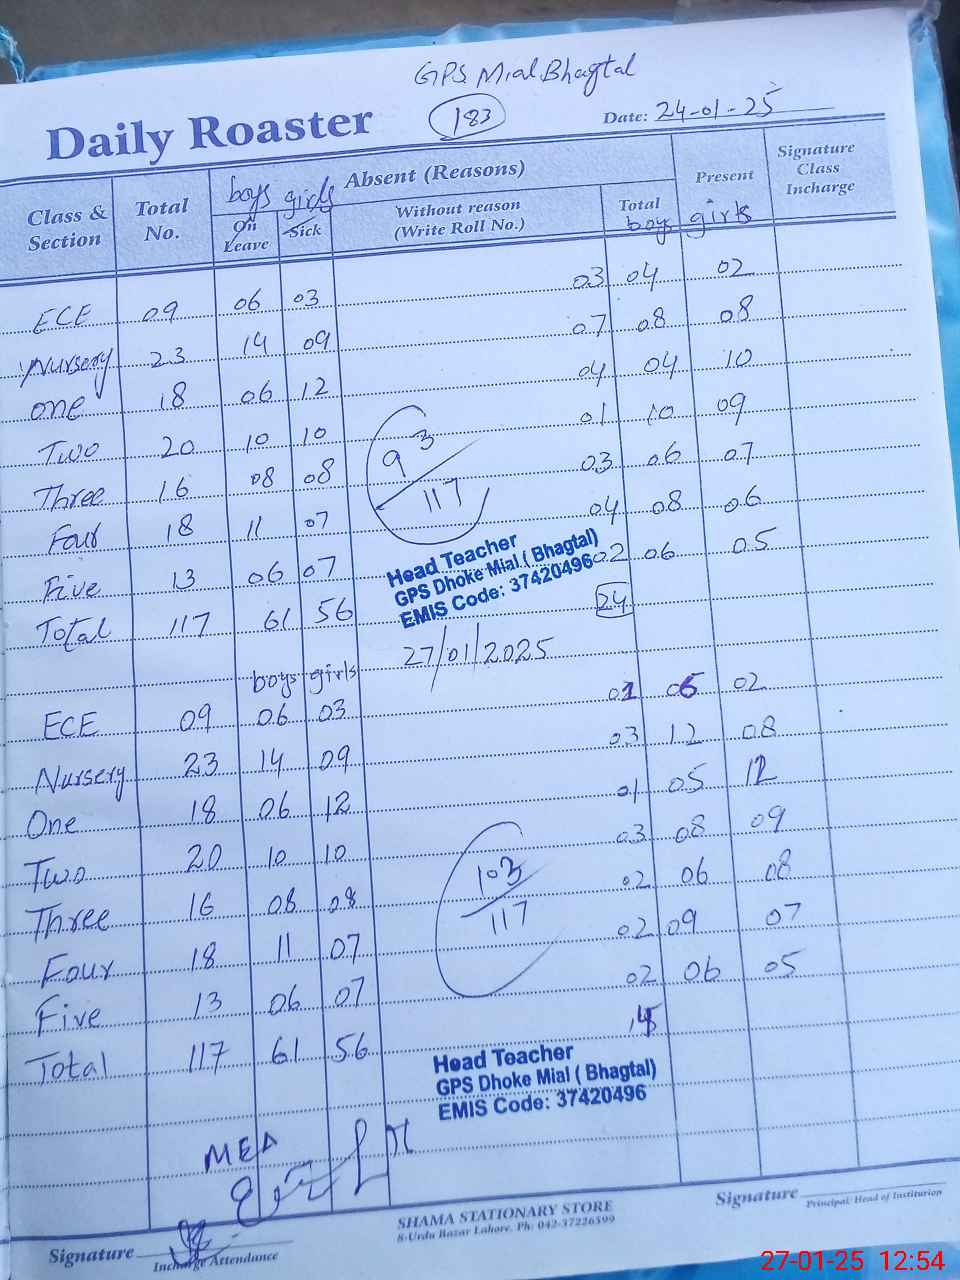 GPS Mial Bhagtal
Daily Roaster 183 Date: 24-01-25
Class & Section Total No. boys girls Absent (Reasons) Present Signature Class Incharge
On Leave Sick Without reason (Write Roll No.) Total boys girls
ECE 09 06 03 03 04 02
Nursery 23 14 09 07 08 08
one 18 06 12 04 04 10
Two 20 10 10 01 10 09
Three 16 08 08 03 06 07
Four 18 11 07 04 08 06
Five 13 06 07 02 06 05
Total 117 61 56 24
93/117
Head Teacher
GPS Dhoke Mial ( Bhagtal)
EMIS Code: 37420496
27/01/2025
boys girls
ECE 09 06 03 01 06 02
Nursery 23 14 09 03 12 08
One 18 06 12 01 05 12
Two 20 10 10 03 08 09
Three 16 08 08 02 06 08
Four 18 11 07 02 09 07
Five 13 06 07 02 06 05
Total 117 61 56
103/117
Head Teacher
GPS Dhoke Mial ( Bhagtal)
EMIS Code: 37420496
MEA
Signature Incharge Attendance
SHAMA STATIONARY STORE
8-Urdu Bazar Lahore. Ph: 042-37226599
Signature Principal/Head of Institurion
27-01-25 12:54